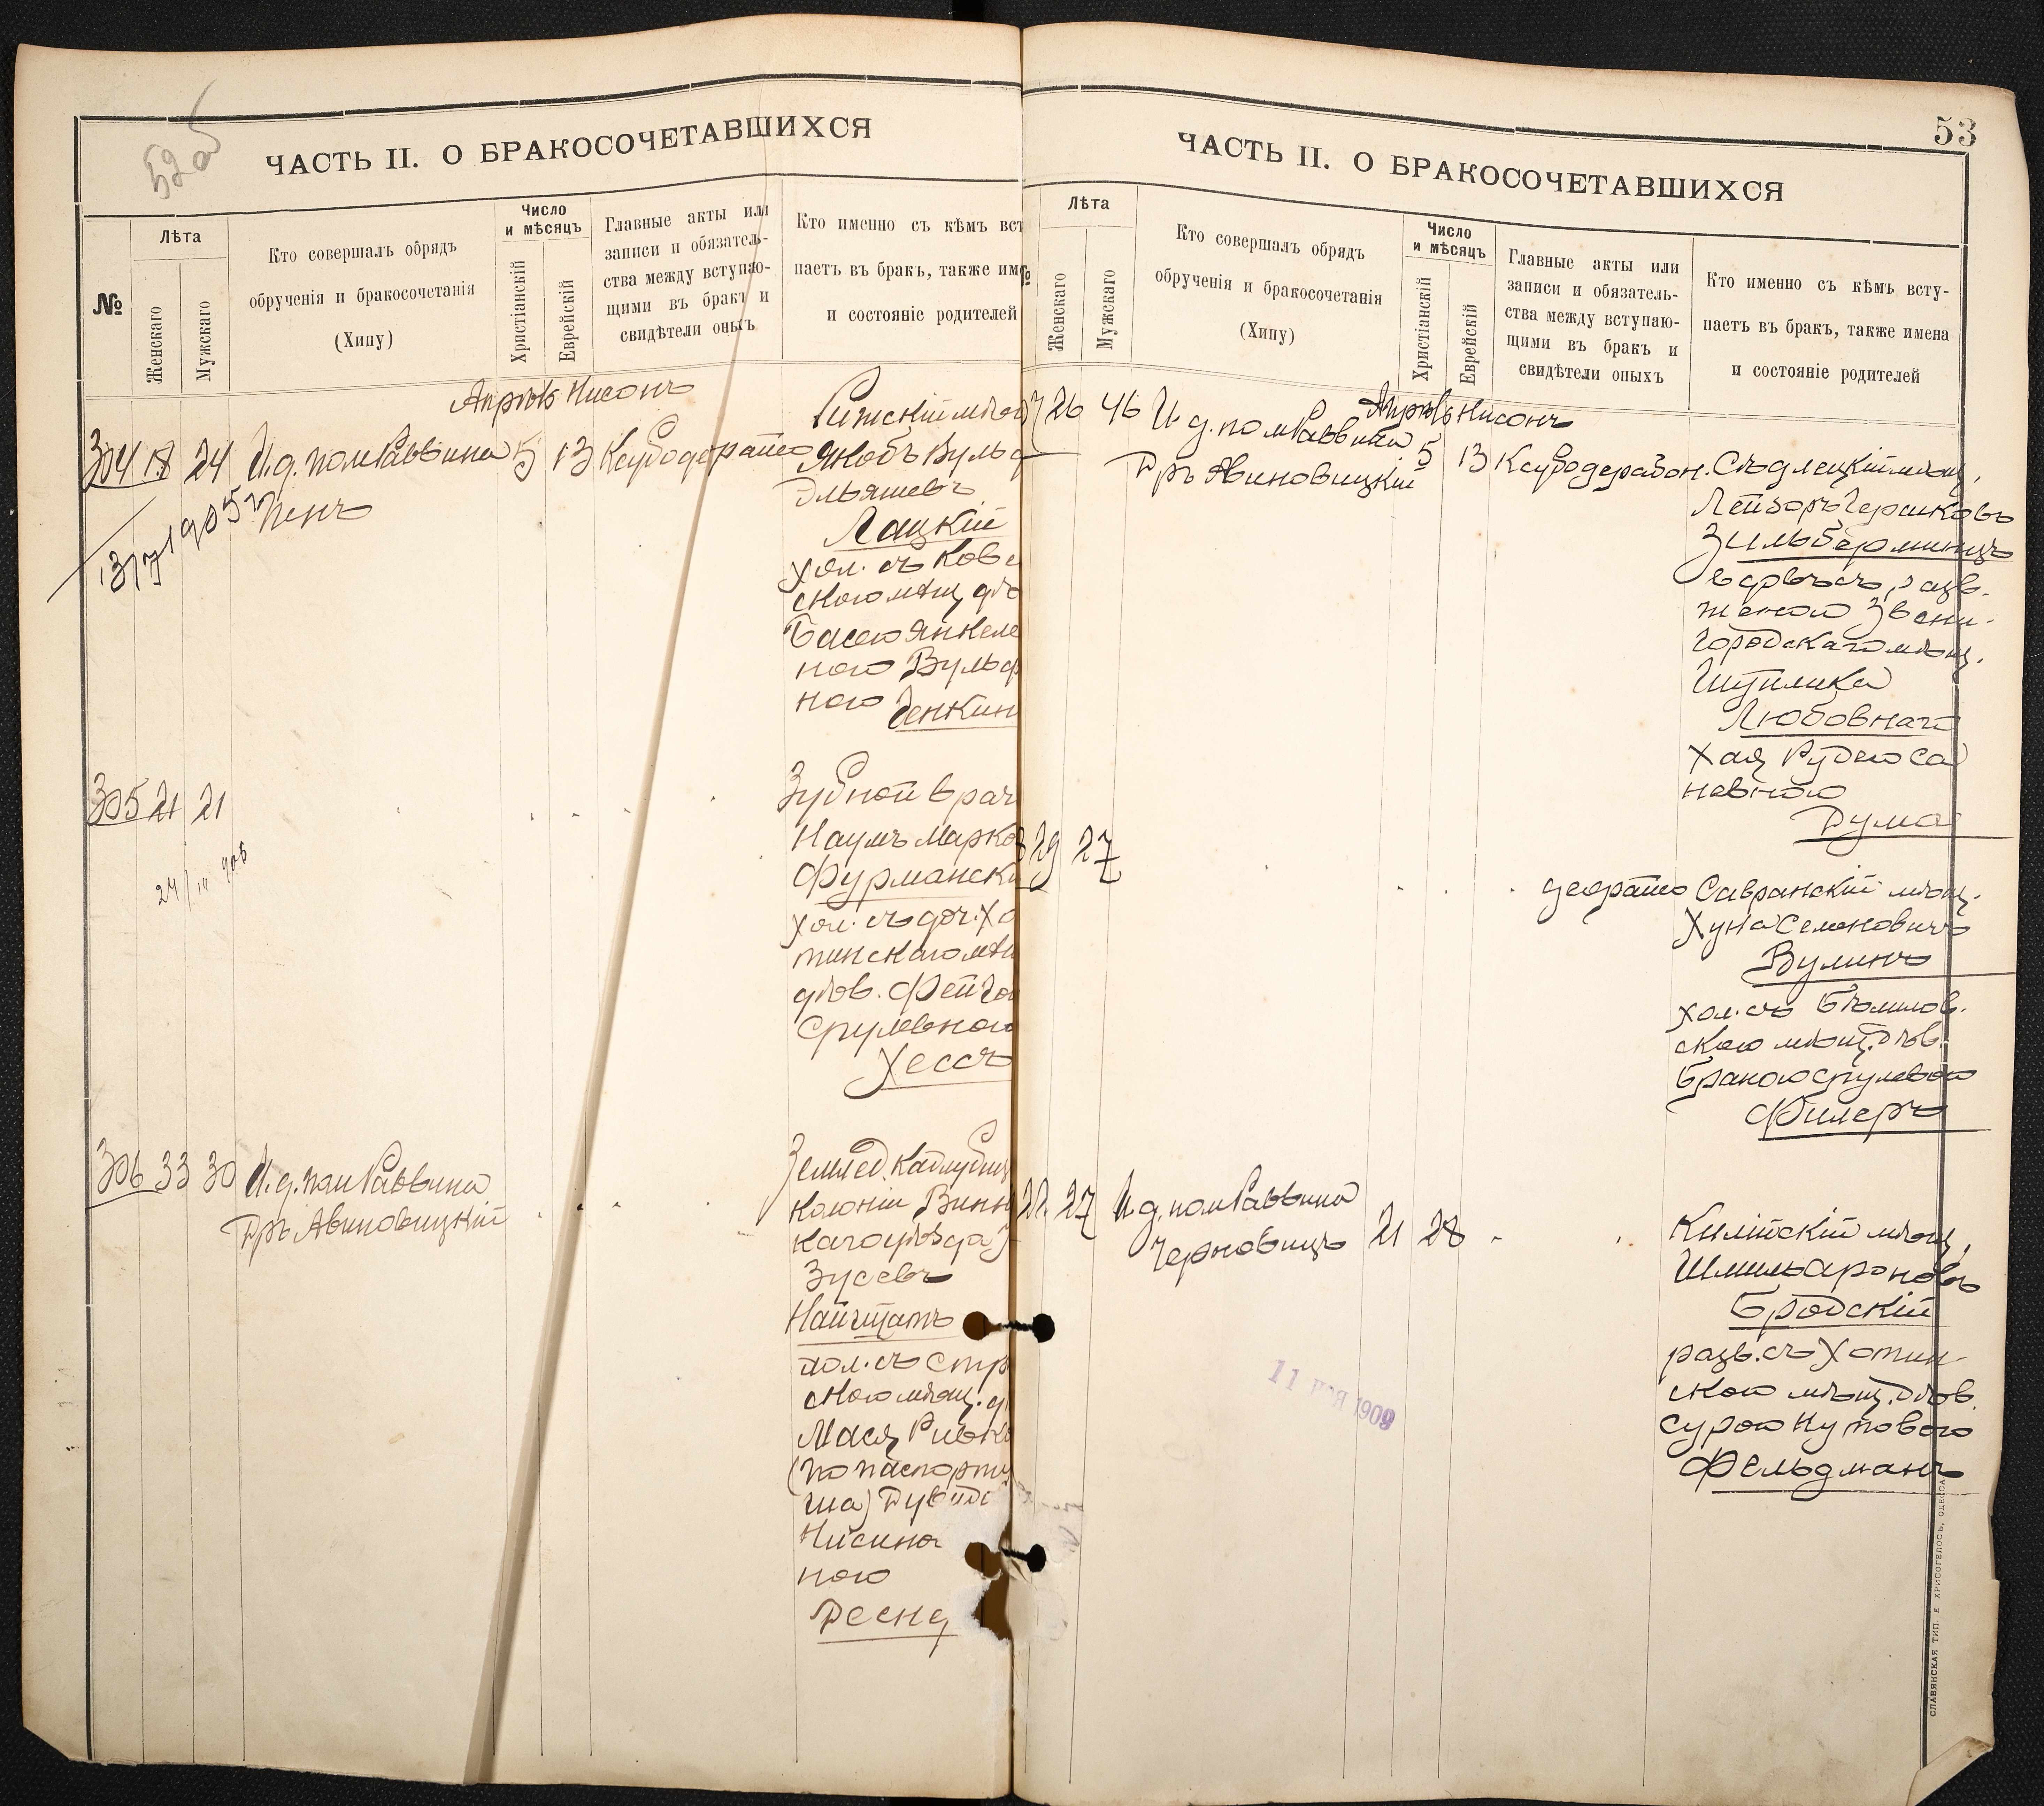 52об
ЧАСТЬ II. О БРАКОСОЧЕТАВШИХСЯ
№
Лѣта
Женскаго
Мужскаго
Кто совершалъ обрядъ
обрученія и бракосочетанія
(Хипу)
Число
и мѣсяцъ
Христіанскій
Еврейскій
Главные акты или
записи и обязатель-
ства между вступаю-
щими въ бракъ и
свидѣтели оныхъ
Кто именно съ кѣмъ вст
паетъ въ бракъ, также им
и состояніе родителей
Апрѣль Нисонъ
304 18 24 И.д. помРаввина 5 13
Пенъ
Рижскій мѣщ
Якобъ Вульф
Эльяшевъ
Лацкій
хол. съ Ков
скою мѣщ дѣ
Басею Янкеле
ною Вульф
ною Генкин
305 21 21
Зубной врач
Наумъ Марко
Фурманскі
хол. съ доч. Хо
тинскаго мѣ
дѣв. Фейго
Срулевною
Хессъ
306 33 30 И.д. помРаввина
Гръ Авиновицкій
Землед.
колоніи Винн
каго уѣзда
Зусевъ
Найштатъ
хол. съ Стр
скою мѣщ. д
Мася Ривк
(по паспорту
ша)
ною
53
ЧАСТЬ II. О БРАКОСОЧЕТАВШИХСЯ
Лѣта
Женскаго
Мужскаго
Кто совершалъ обрядъ
обрученія и бракосочетанія
(Хипу)
Число
и мѣсяцъ
Христіанскій
Еврейскій
Главные акты или
записи и обязатель-
ства между вступаю-
щими въ бракъ и
свидѣтели оныхъ
Кто именно съ кѣмъ всту-
паетъ въ бракъ, также имена
и состояніе родителей
Апрѣль Нисонъ
7 26 46 И.д. помРаввина 5 13
Гръ Авиновицкій
Сѣдлецкій мѣщ.
Лейзоръ Гершковъ
Зильберминцъ
вдовъ съ разв.
женою Звени-
городскаго мѣщ.
Шулима
Любовнаго
Хая Рудею Са
невною
Дума
8 29 27
Савранскій мѣщ.
Хуна Семеновичъ
Вулинъ
хол. съ Бѣлилов.
скою мѣщ. дѣв.
Браною Срулевою
Филеръ
22 27 И.д. помРаввина
Черновицъ 21 28
Килійскій мѣщ.
Шмиль Ароновъ
Бродскій
разв. съ Хотин-
скою мѣщ. дѣв.
Сурою Нутовою
Фельдманъ
СЛАВЯНСКАЯ ТИП. Е. ХРИСОГЕЛОСЪ, ОДЕССА